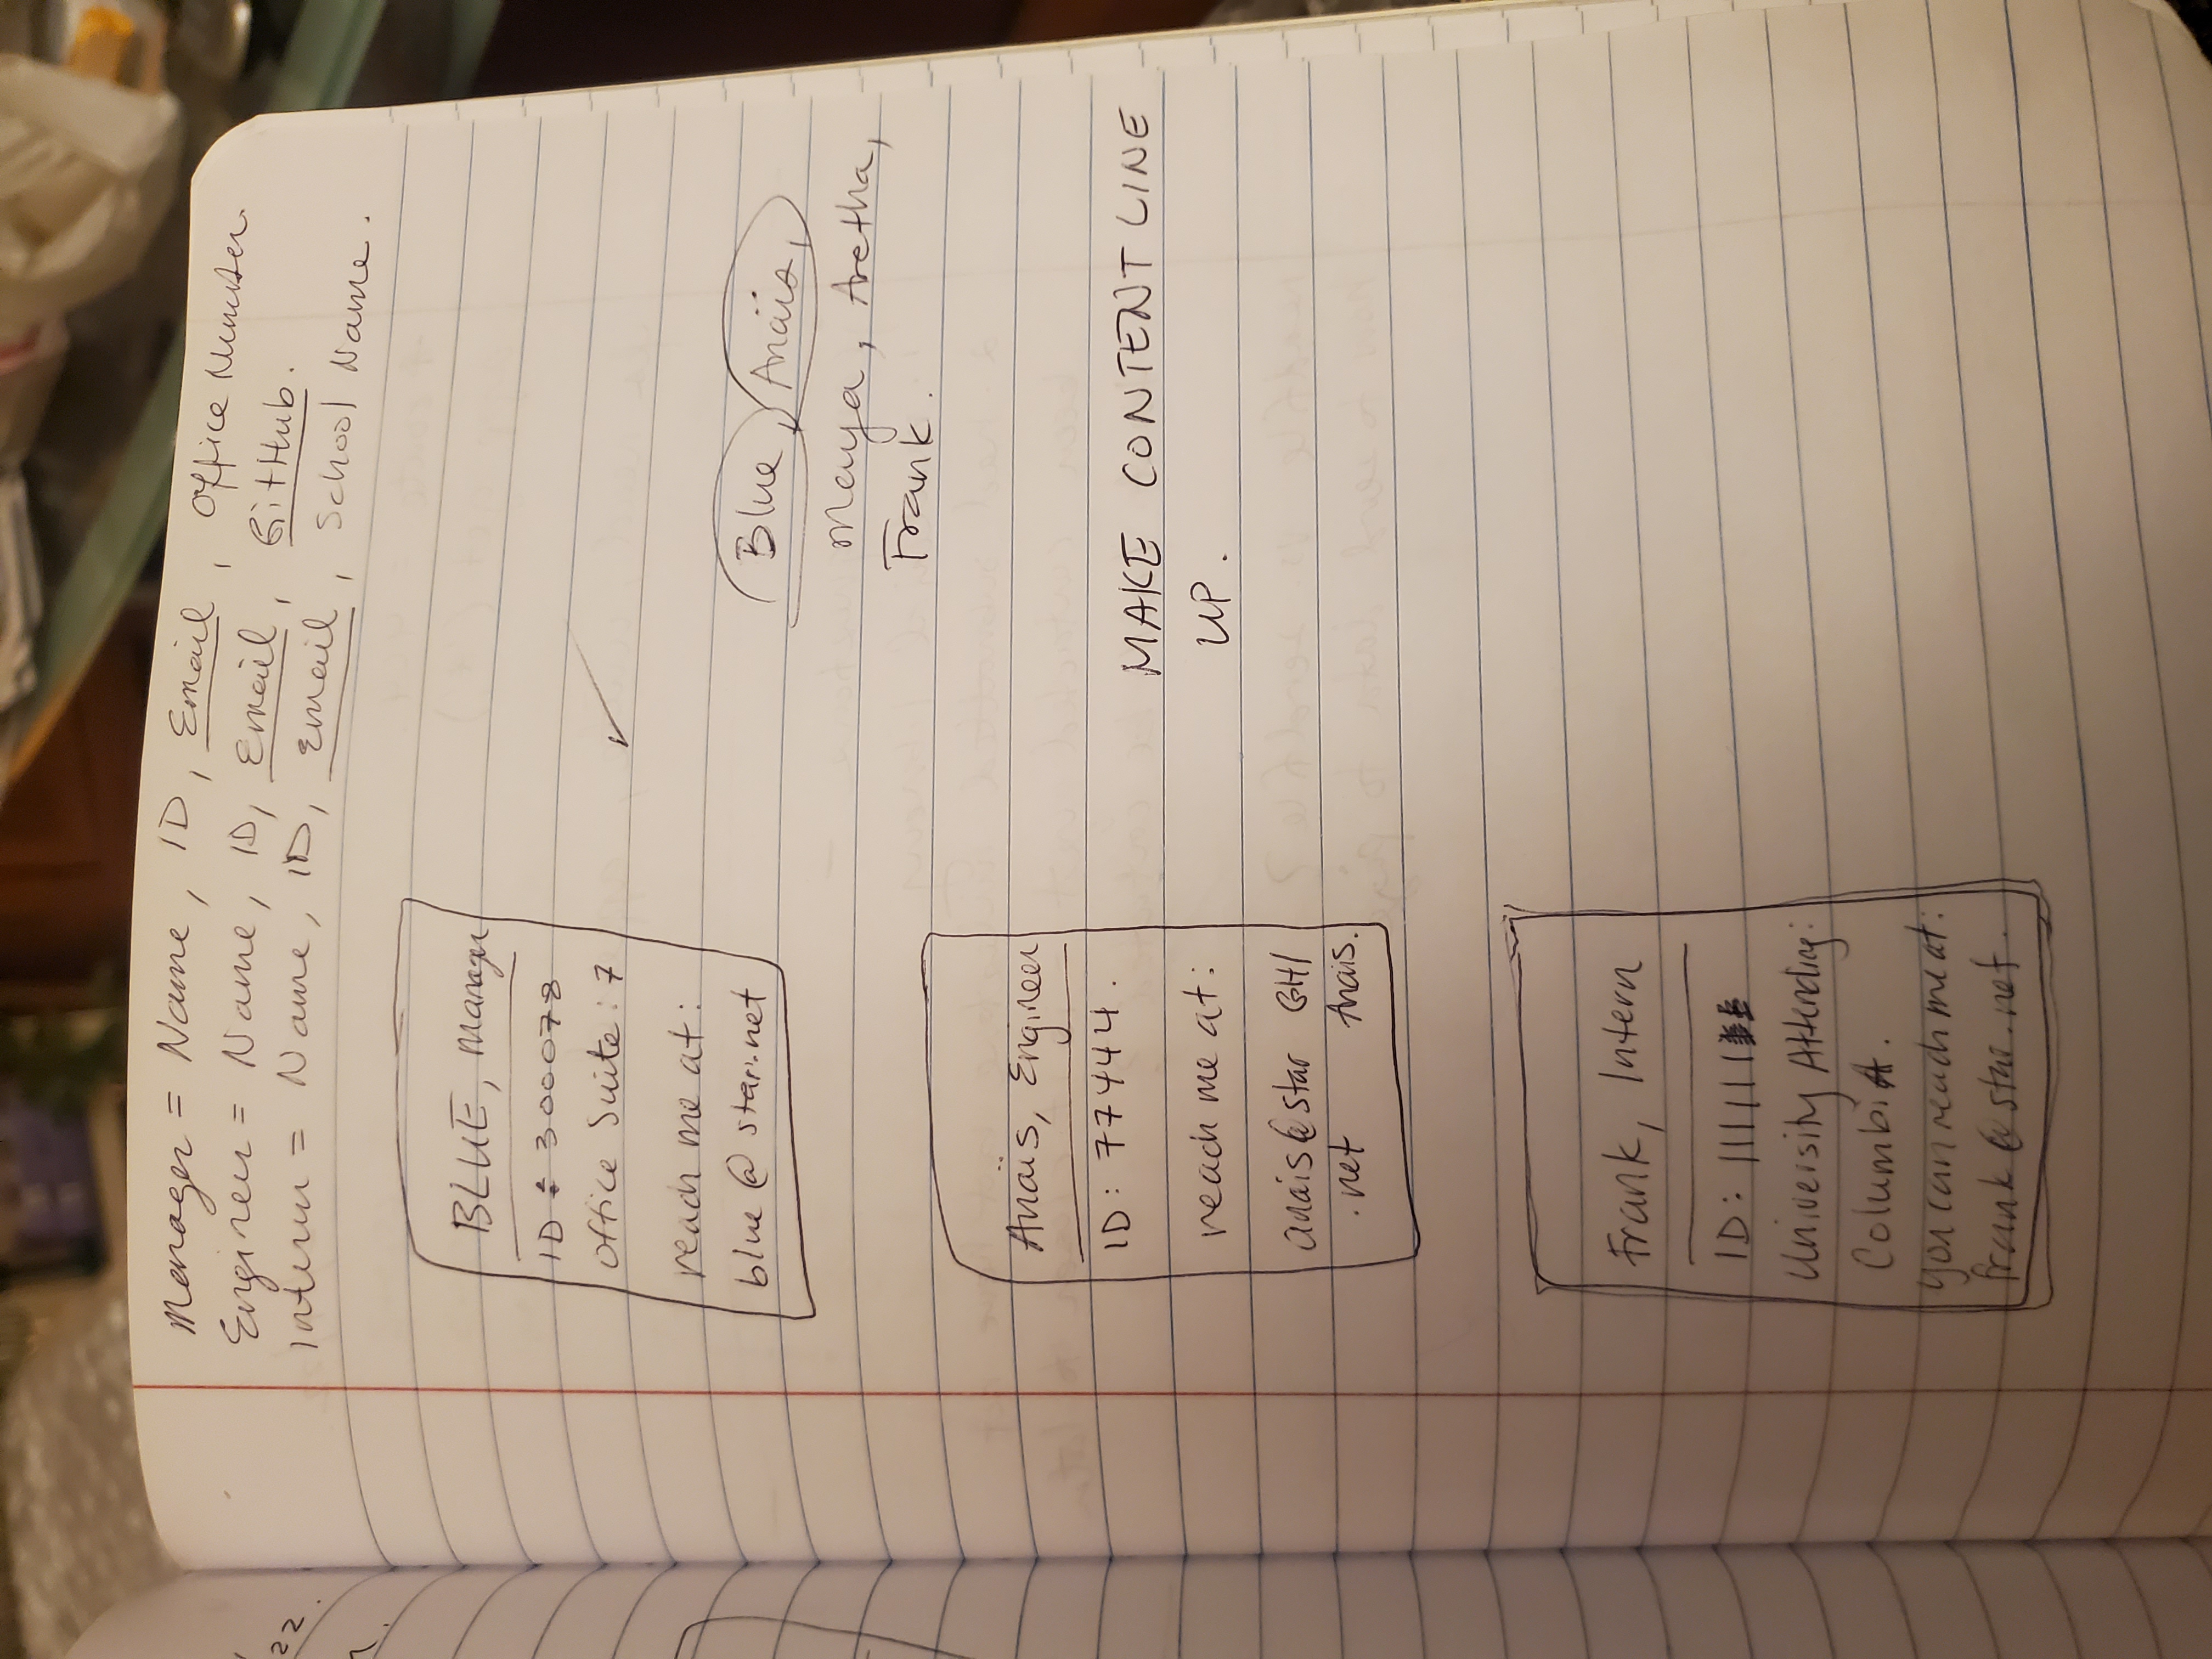 Manager = Name, ID, Email, Office Number.
Engineer = Name, ID, Email, GitHub.
Intern = Name, ID, Email, School Name.
BLUE, Manager
ID: 300078
Office Suite: 7
reach me at:
blue@star.net
Blue, Anaïs,
Maya, Aretha,
Frank.
Anaïs, Engineer
ID: 77444.
reach me at:
anais@star GH/
.net Anais.
MAKE CONTENT LINE
UP.
Frank, Intern
ID: 111111
University Attending:
ColumbiA.
you can reach me at:
frank@star.net.
22.